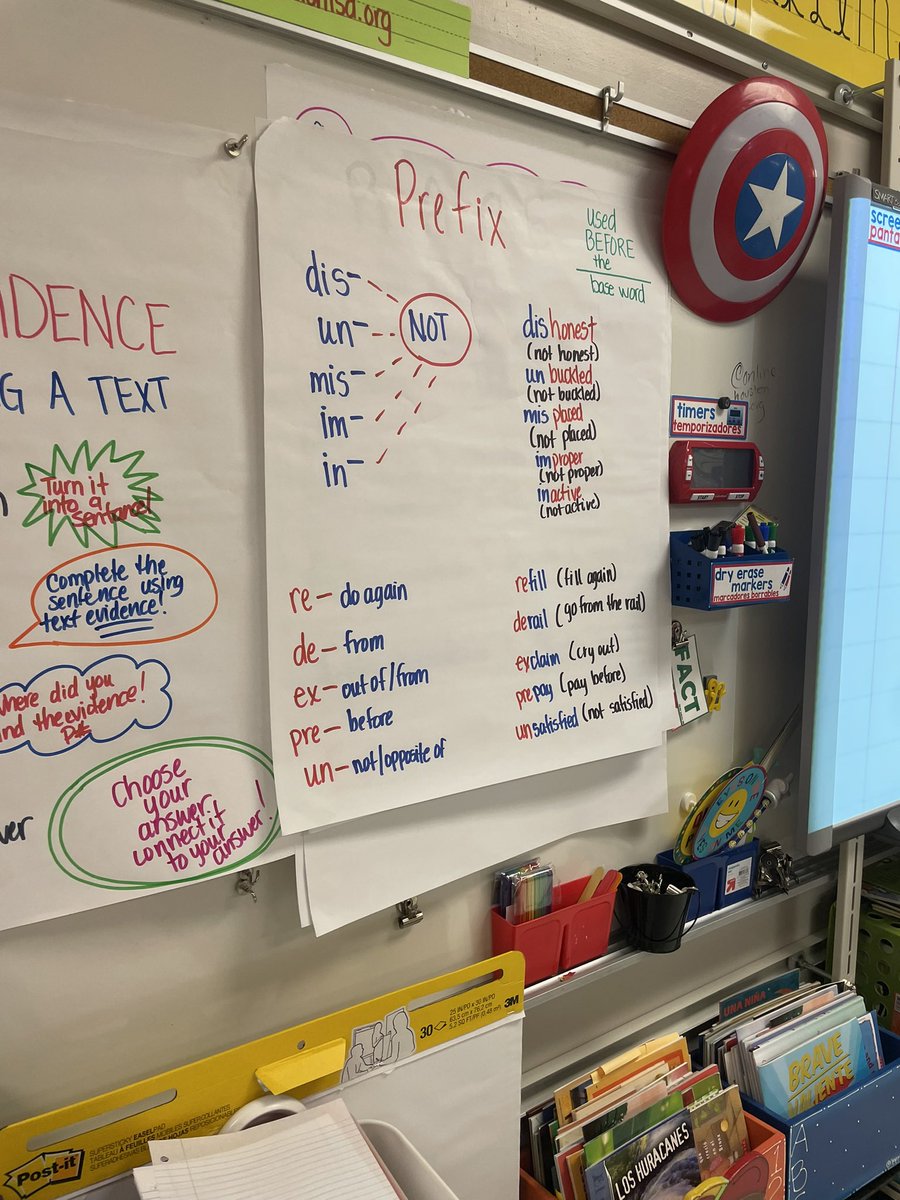 msd.org
Prefix
used
BEFORE
the
base word
dis-
un-
mis-
im-
in-
NOT
dishonest
(not honest)
unbuckled
(not buckled)
misplaced
(not placed)
improper
(not proper)
inactive
(not active)
re- do again
de- from
ex- out of/from
pre- before
un- not/opposite of
refill (fill again)
derail (go from the rail)
exclaim (cry out)
prepay (pay before)
unsatisfied (not satisfied)
IDENCE
G A TEXT
Turn it
into a
sentence!
Complete the
sentence using
text evidence!
Where did you
find the evidence!
Choose
your
answer,
connect it
to your
answer!
wer
SMART
scree
panta
timers
temporizadores
START
STOP
dry erase
markers
marcadores borrables
FACT
30
25 IN/PO x 30 IN/PO
63,5 cm x 76,2 cm
5.2 SQ FT/PF (0,48 m²)
3M
Post-it
SUPERSTICKY EASEL PAD
TABLEAU À FEUILLES MOBILES SUPER COLLANTES
UNA NIÑA
BRAVE
VALIENTE
LOS HURACANES
A
B